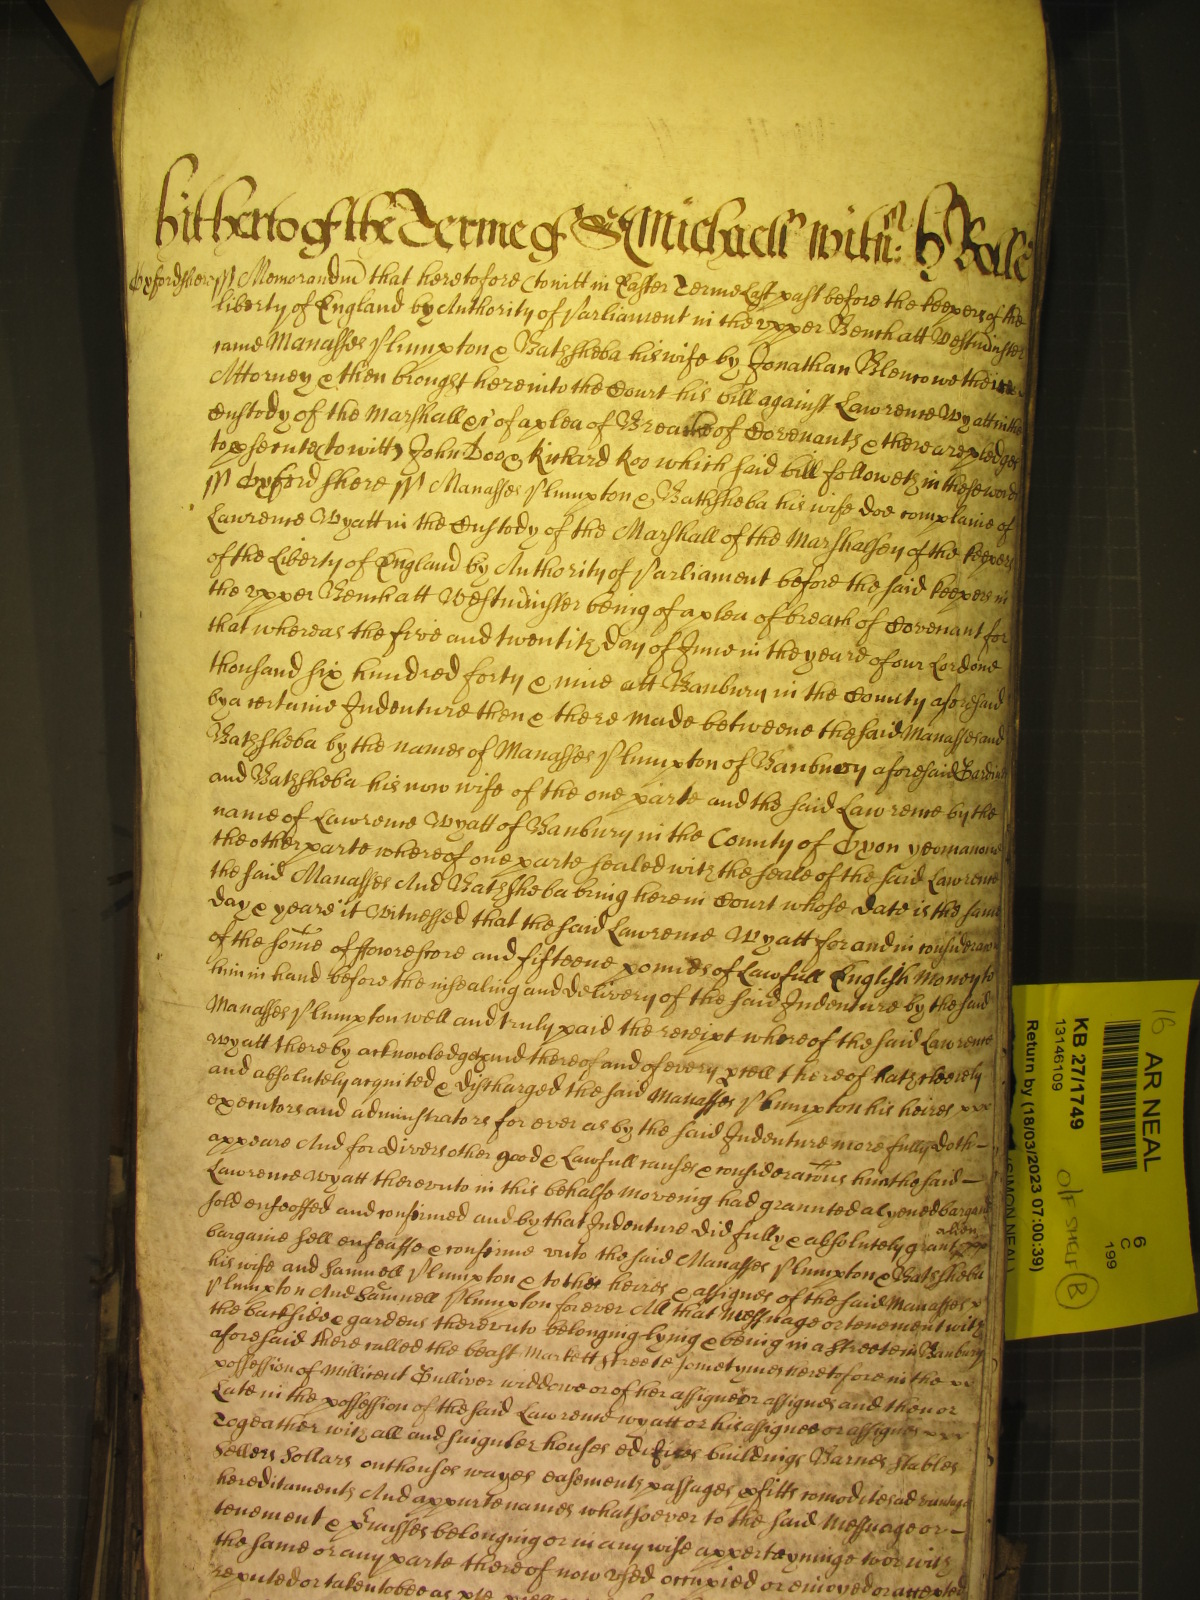 hitherto of the Terme of St Michaell witn: H Rolle
Oxfordshere ss Memorandu that heretofore (to witt in Easter Terme last past before the keepers of the
liberty of England by Authority of Parliament in the vpper Bench att Westminster
came Manasses Plumpton & Bathsheba his wife by Jonathan Blencowe their
Attorney & then brought here into the Court his bill against Lawrence Wyatt in the
Custody of the Marshall &c of a plea of Breach of Covenants & there are pledges
to psecute (to witt) John Doo & Richard Roo which said bill followeth in these words
ss Oxford shere ss Manasses Plumpton & Bathsheba his wife doe complaine of
Lawrence Wyatt in the Custody of the Marshall of the Marshalsey of the keepers
of the Liberty of England by Authority of Parliament before the said keepers in
the vpper Bench att Westminster being of a plea of breach of Covenant for
that whereas the five and twentith day of June in the yeare of our Lord one
thousand six hundred forty & nine att Banbury in the County aforesaid
by a certaine Indenture then & there made betweene the said Manasses and
Bathsheba by the names of Manasses Plumpton of Banbury aforesaid
and Bathsheba his now wife of the one parte and the said Lawrence by the
name of Lawrence Wyatt of Banbury in the County of Oxon yeoman on
the other parte whereof one parte sealed with the seale of the said Lawrence
the said Manasses And Bathsheba bring here in Court whose date is the same
day & yeare it Witnessed that the said Lawrence Wyatt for and in consideracon
of the some of fowrescore and fifteene pounds of Lawfull English Money to
him in hand before the insealing and delivery of the said Indenture by the said
Manasses Plumpton well and truly paid the receipt whereof the said Lawrence
Wyatt thereby acknowledged and thereof and of every pcell thereof hath cleerely
and absolutely acquited & discharged the said Manasses Plumpton his heires
executors and administrators for ever as by the said Indenture more fully doth
appeare And for divers other good & Lawfull causes & consideracons him the said
Lawrence Wyatt therevnto in this behalfe moveing had graunted alyened bargaind
sold enfeoffed and confirmed and by that Indenture did fully & absolutely graunt alien
bargaine sell enfeoffe & confirme vnto the said Manasses Plumpton & Bathsheba
his wife and Samuell Plumpton & to their heires & assignes of the said Manasses
Plumpton And Samuell Plumpton for ever All that Messuage or tenement with
the backside & gardens therevnto belonging lying & being in a streete in Banbury
aforesaid there called the beast Markett streete sometymes heretofore in the
possession of Millicent Gulliver widdowe or of her assignee or assignes and then or
Late in the possession of the said Lawrence wyatt or his assignee or assignes
Togeather with all and singuler houses edifices buildings Barnes stables
Sellers Sollars outhouses wayes easements passages pfitts comodites advantages
hereditaments And appurtenances whatsoever to the said Messuage or
tenement & pmisses belonging or in any wise apperteyninge to or with
the same or any parte thereof now vsed occupied or enioyed or accepted
reputed or taken to bee as pte
16
AR NEAL
KB 27/1749
13146109
Return by (18/03/2023 07:00:39)
(SIMON NEAL)
6
C
199
O/F SHELF
B